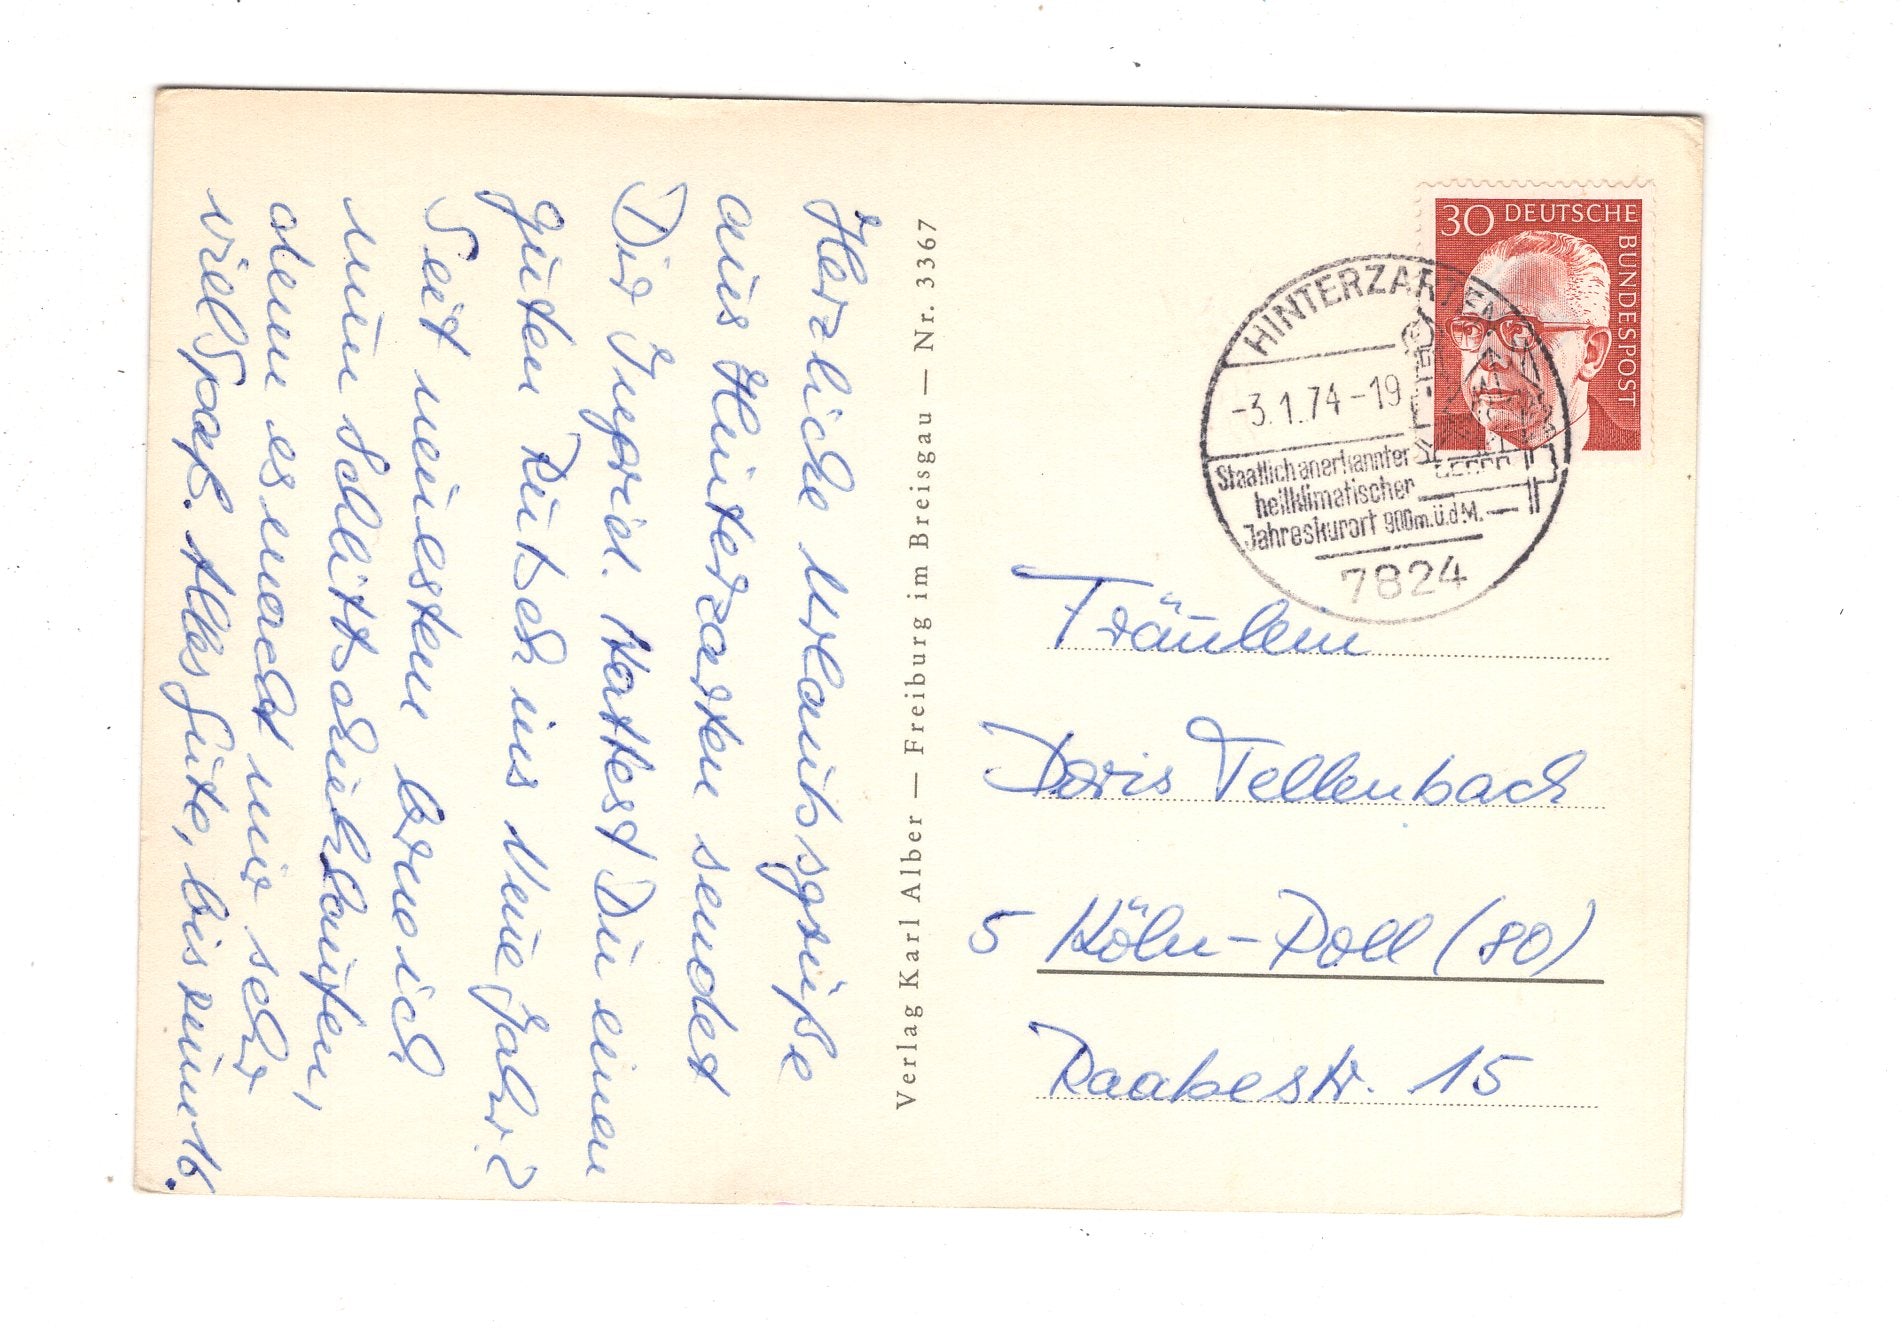 Herzliche Urlaubsgrüße
aus Hinterzarten sendet
Dir Ingrid. Hattest Du einen
guten Rutsch ins Neue Jahr?
Seit neuestem bin ich
nun Schlittschuhlaufen,
denn es macht mir sehr
viel Spaß. Alles Gute, bis zum 16.
Verlag Karl Alber — Freiburg im Breisgau — Nr. 3367
30 DEUTSCHE
BUNDESPOST
HINTERZARTEN
-3.1.74-19
Staatlich anerkannter
heilklimatischer
Jahreskurort 900m.ü.d.M.
7824
Fräulein
Doris Tellenbach
5 Köln-Poll (80)
Raabestr. 15